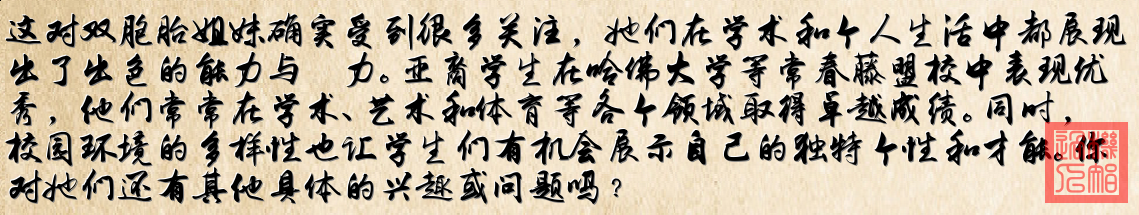 这对双胞胎姐妹确实受到很多关注，她们在学术和个人生活中都展现
出了出色的能力与　力。亚裔学生在哈佛大学等常春藤盟校中表现优
秀，他们常常在学术、艺术和体育等各个领域取得卓越成绩。同时，
校园环境的多样性也让学生们有机会展示自己的独特个性和才能。你
对她们还有其他具体的兴趣或问题吗？